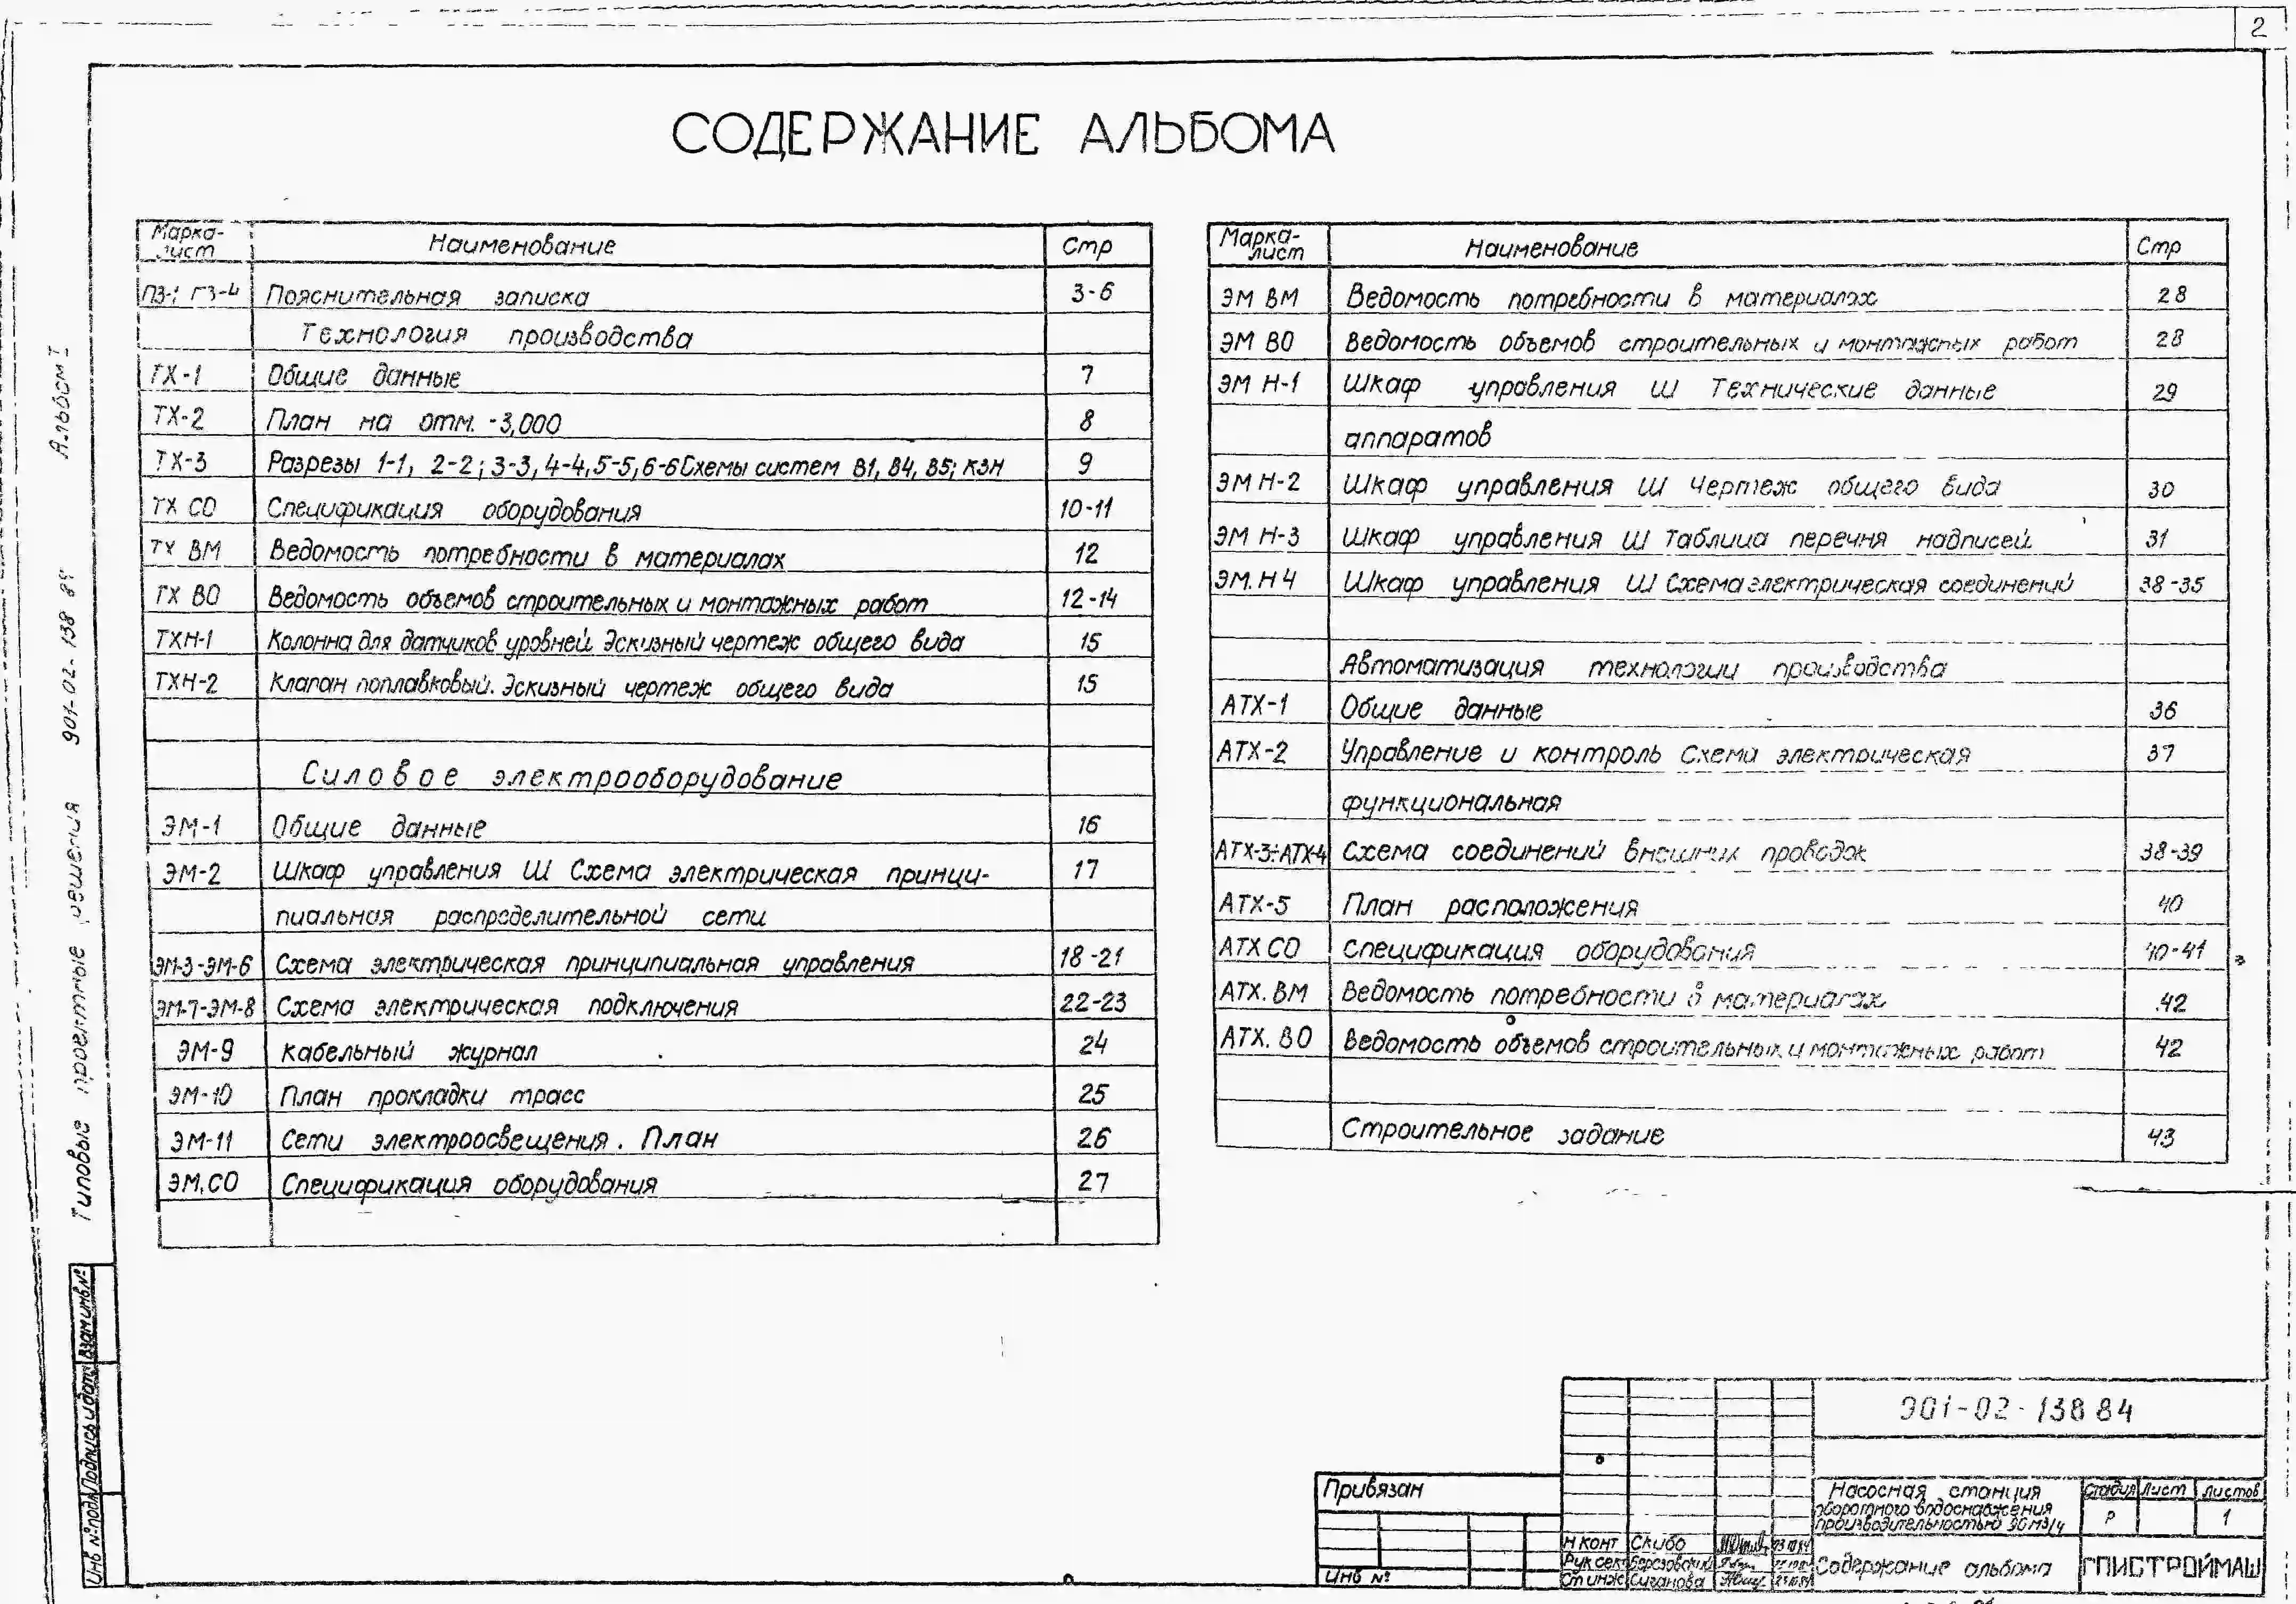 2
СОДЕРЖАНИЕ АЛЬБОМА
Марка-лист Наименование Стр
ПЗ-1 ПЗ-4 Пояснительная записка 3-6
Технология производства
ТХ-1 Общие данные 7
ТХ-2 План на отм. -3,000 8
ТХ-3 Разрезы 1-1, 2-2; 3-3, 4-4, 5-5, 6-6 Схемы систем В1, В4, В5; К3Н 9
ТХ СО Спецификация оборудования 10-11
ТХ ВМ Ведомость потребности в материалах 12
ТХ ВО Ведомость объемов строительных и монтажных работ 12-14
ТХН-1 Колонна для датчиков уровней. Эскизный чертеж общего вида 15
ТХН-2 Клапан поплавковый. Эскизный чертеж общего вида 15
Силовое электрооборудование
ЭМ-1 Общие данные 16
ЭМ-2 Шкаф управления Ш Схема электрическая принци-
пиальная распределительной сети 17
ЭМ-3-ЭМ-6 Схема электрическая принципиальная управления 18-21
ЭМ-7-ЭМ-8 Схема электрическая подключения 22-23
ЭМ-9 Кабельный журнал 24
ЭМ-10 План прокладки трасс 25
ЭМ-11 Сети электроосвещения. План 26
ЭМ.СО Спецификация оборудования 27
Марка-лист Наименование Стр
ЭМ ВМ Ведомость потребности в материалах 28
ЭМ ВО Ведомость объемов строительных и монтажных работ 28
ЭМ Н-1 Шкаф управления Ш Технические данные 29
аппаратов
ЭМ Н-2 Шкаф управления Ш Чертеж общего вида 30
ЭМ Н-3 Шкаф управления Ш Таблица перечня надписей 31
ЭМ.Н4 Шкаф управления Ш Схема электрическая соединений 38-35
Автоматизация технологии производства
АТХ-1 Общие данные 36
АТХ-2 Управление и контроль Схема электрическая 37
функциональная
АТХ-3÷АТХ-4 Схема соединений внешних проводок 38-39
АТХ-5 План расположения 40
АТХ СО Спецификация оборудования 40-41
АТХ.ВМ Ведомость потребности в материалах 42
АТХ.ВО Ведомость объемов строительных и монтажных работ 42
Строительное задание 43
Альбом I
Типовые проектные решения 901-02-138 84
Взам инв.№
Подпись и дата
Инв № подл
901-02-138 84
Привязан
Инв №
Насосная станция
оборотного водоснабжения
производительностью 36 м3/ч
Стадия Лист Листов
Р 1
Н конт Скибо
Рук сект Березовский
Ст инж Суганова
Содержание альбома
ГПИСТРОЙМАШ